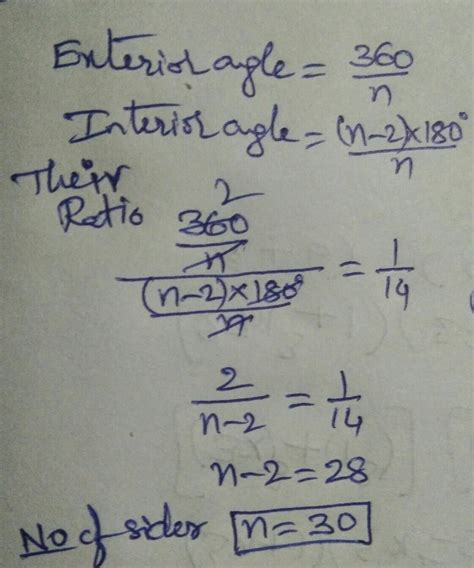 Exterior angle = 360/n
Interior angle = (n-2)×180°/n
Their
Ratio
2
360/n / (n-2)×180°/n = 1/14
2/n-2 = 1/14
n-2 = 28
No of sides n = 30